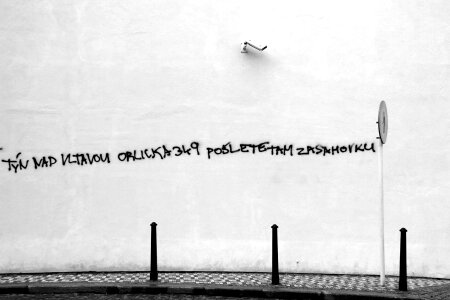 TÝN NAD VLTAVOU ORLICKA 349 POŠLETE TAM ZASAHOVKU